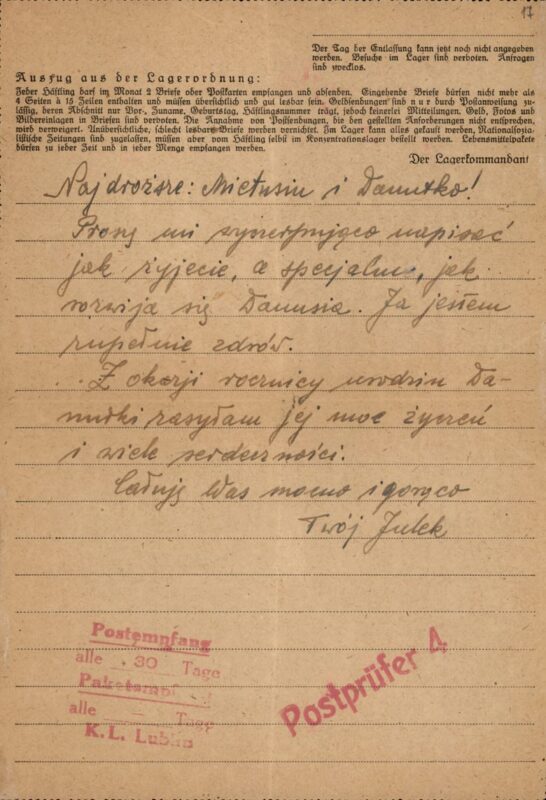 17
Der Tag der Entlassung kann jetzt noch nicht angegeben
werden. Besuche im Lager sind verboten. Anfragen
sind zwecklos.
Auszug aus der Lagerordnung:
Jeder Häftling darf im Monat 2 Briefe oder Postkarten empfangen und absenden. Eingehende Briefe dürfen nicht mehr als
4 Seiten à 15 Zeilen enthalten und müssen übersichtlich und gut lesbar sein. Geldsendungen sind nur durch Postanweisung zu-
lässig, deren Abschnitt nur Vor-, Zuname, Geburtstag, Häftlingsnummer trägt, jedoch keinerlei Mitteilungen. Geld, Fotos und
Bildereinlagen in Briefen sind verboten. Die Annahme von Postsendungen, die den gestellten Anforderungen nicht entsprechen,
wird verweigert. Unübersichtliche, schlecht lesbare Briefe werden vernichtet. Im Lager kann alles gekauft werden. Nationalsozia-
listische Zeitungen sind zugelassen, müssen aber vom Häftling selbst im Konzentrationslager bestellt werden. Lebensmittelpakete
dürfen zu jeder Zeit und in jeder Menge empfangen werden.
Der Lagerkommandant
Najdroższe: Mietusiu i Danutko!
Proszę mi wyczerpująco napisać
jak żyjecie, a specjalnie, jak
rozwija się Danusia. Ja jestem
zupełnie zdrów.
Z okazji rocznicy urodzin Da-
nutki zasyłam jej moc życzeń
i wiele serdeczności.
Całuję Was mocno i gorąco
Twój Julek
Postempfang
alle 30 Tage
alle Tage
K.L. Lublin
Postprüfer 4